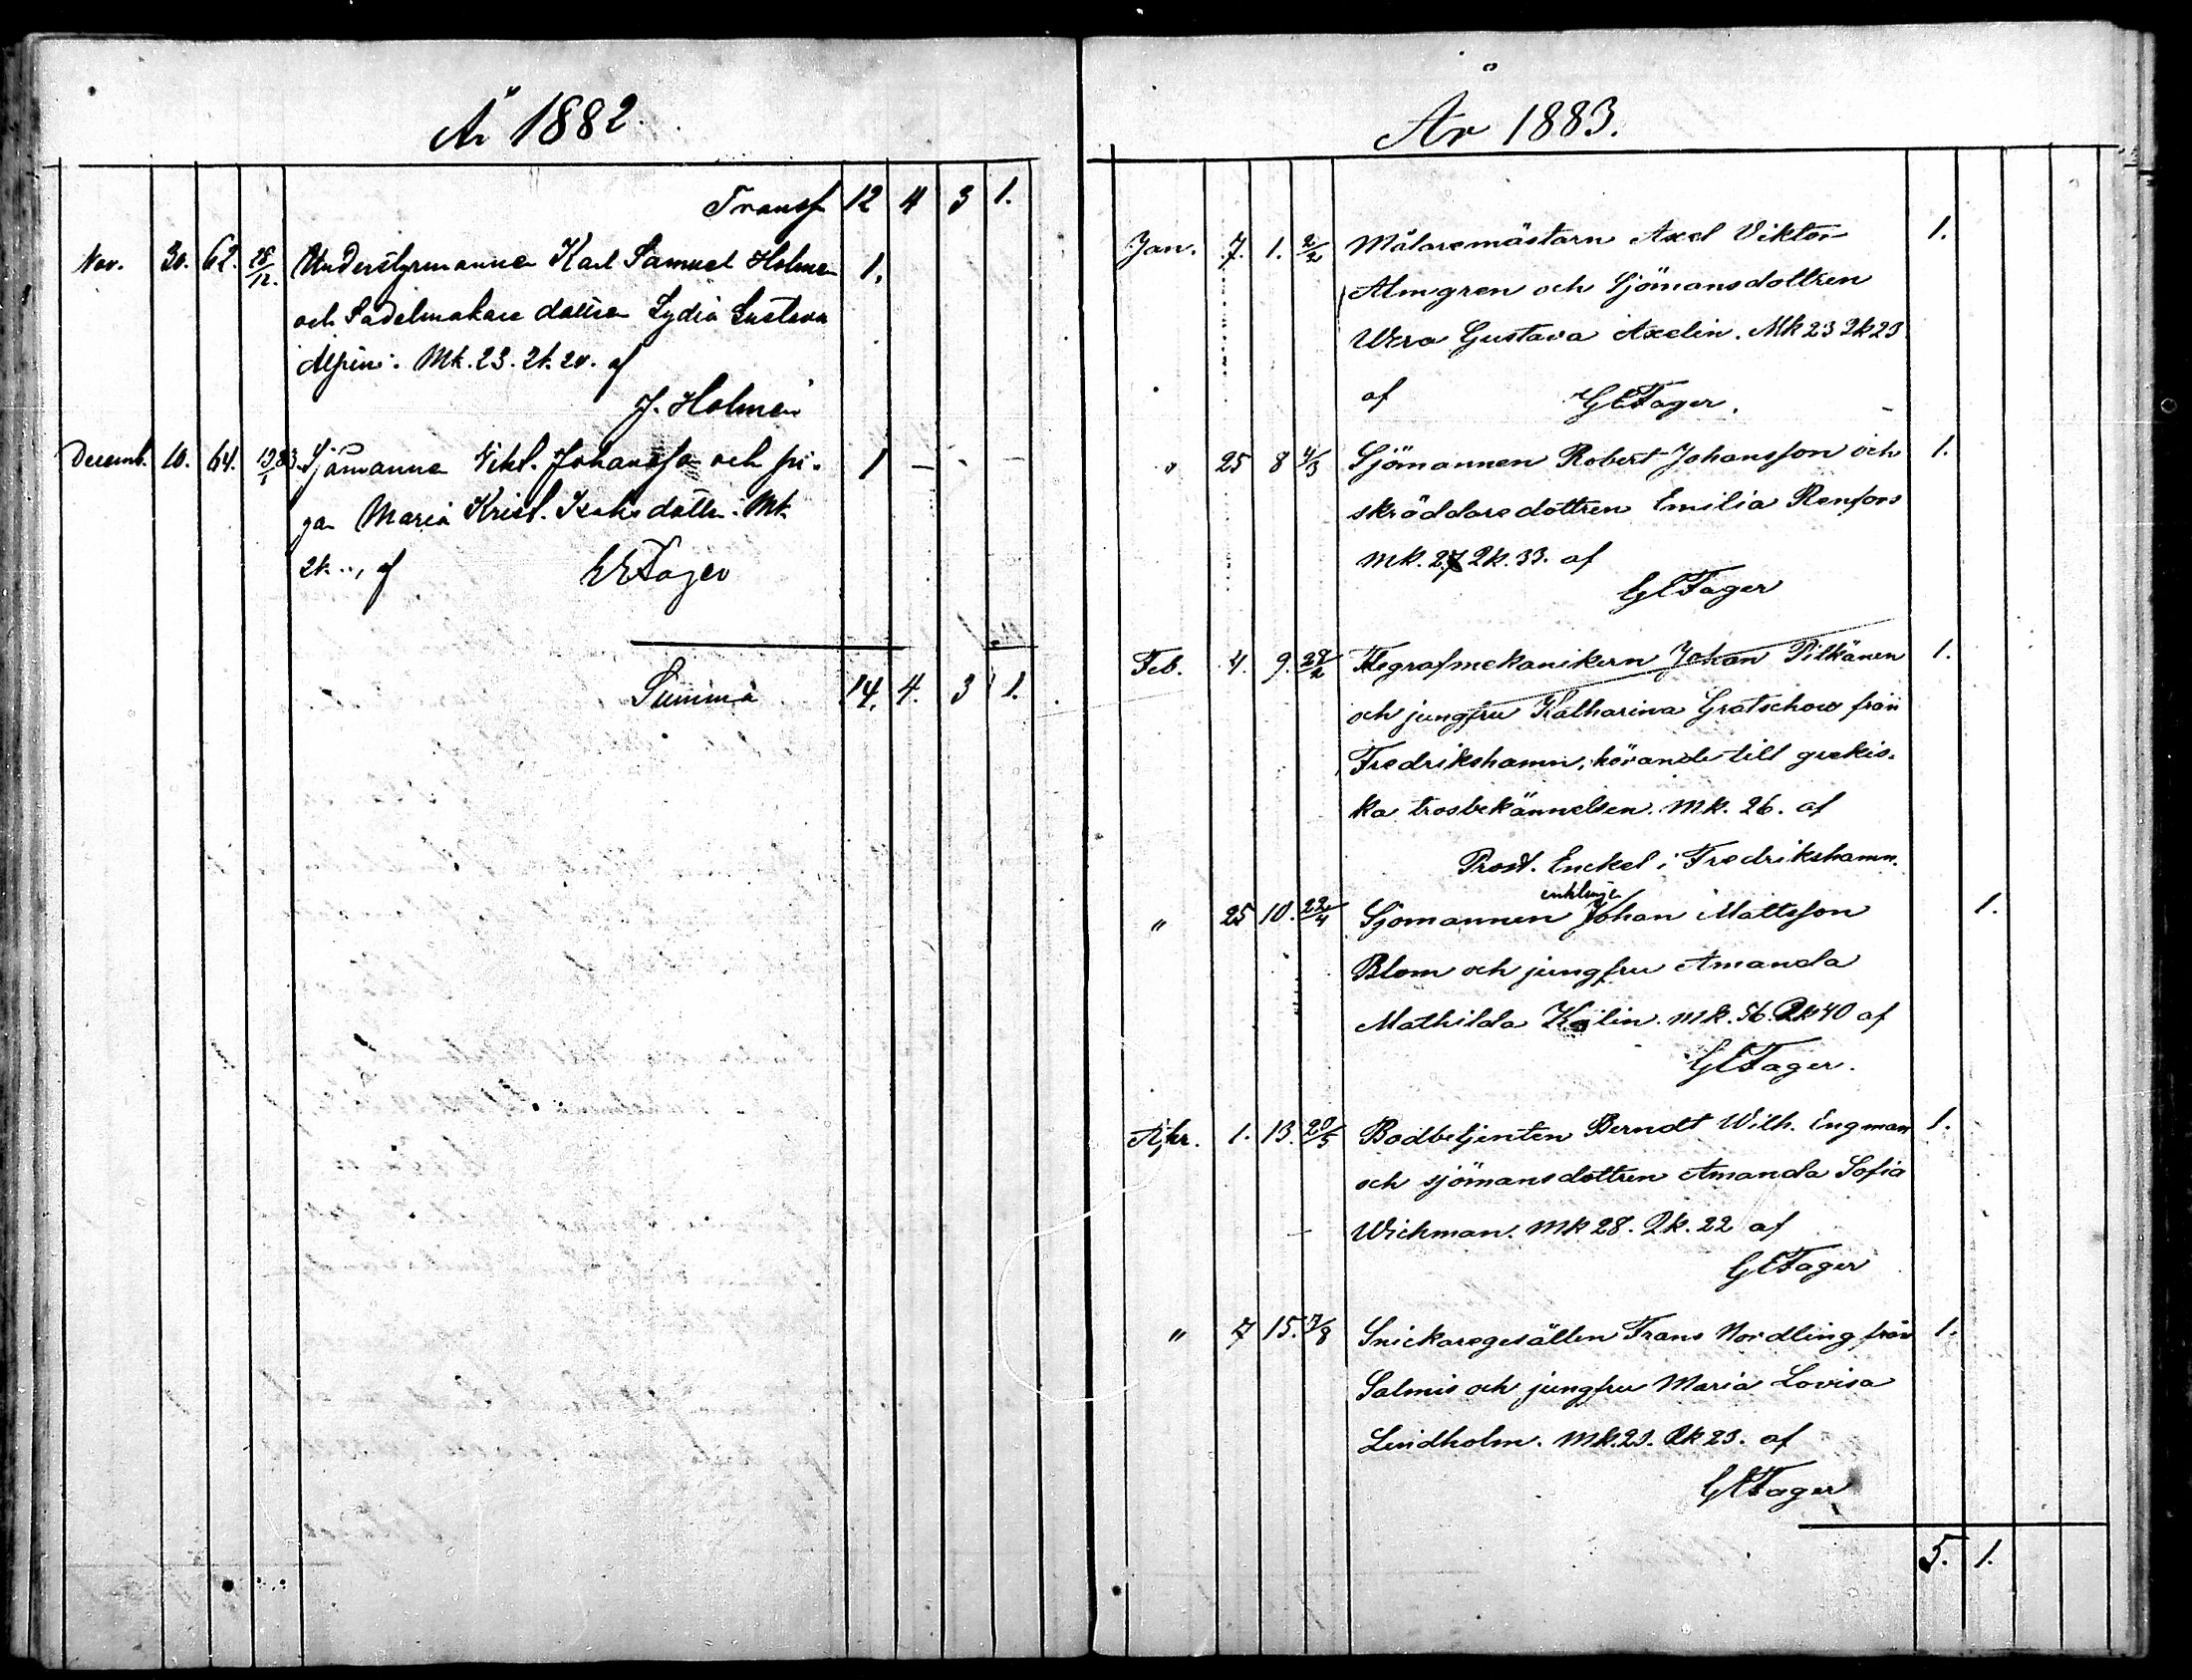 År 1882.
Transf 12 4 3 1.
Nov. 30. 62. 28/12. Understyrmannen Karl Samuel Holmen 1.
och Sadelmakare dottren Lydia Gustava
Alfini. Mk. 23. Qk. 20. af
J. Holmén
Decemb. 10. 64. Sjömannen Vikt. Johansson och pi- 1 - - -
gan Maria Krist. Isaksdotter. Mk
Qk.., af GEFager
Summa 14. 4. 3 1.
År 1883.
Jan. 7. 1. 2/2 Målaremästarn Axel Viktor 1.
Almgren och Sjömansdottren
Wera Gustava Axelin. Mk 23 Qk 20
af GEFager.
" 25 8 4/3 Sjömannen Robert Johansson och 1.
skräddaredottren Emilia Renfors
mk. 27 Qk. 33. af
GEFager
Feb. 4. 9. 28/2 Telegrafmekanikern Johan Pitkänen 1.
och jungfru Katharina Gratschow från
Fredrikshamn, hörande till grekis-
ka trosbekännelsen. Mk. 26. af
Prost. Enckel i Fredrikshamn.
enklinge
" 25 10. 22/4 Sjömannen Johan Mattsson 1.
Blom och jungfru Amanda
Mathilda Kjlin. mk. 56. Qk 40 af
GEFager.
Apr. 1. 13. 20/5 Bodbetjenten Berndt Wilh. Engman 1.
och sjömansdottren Amanda Sofia
Wichman. Mk 28. Qk. 22 af
GEFager
" 7 15. 7/8 Snickaregesällen Frans Nordling från 1.
Salmis och jungfru Maria Lovisa
Lindholm. Mk. 29. Qk 23. af
GEFager
5. 1.